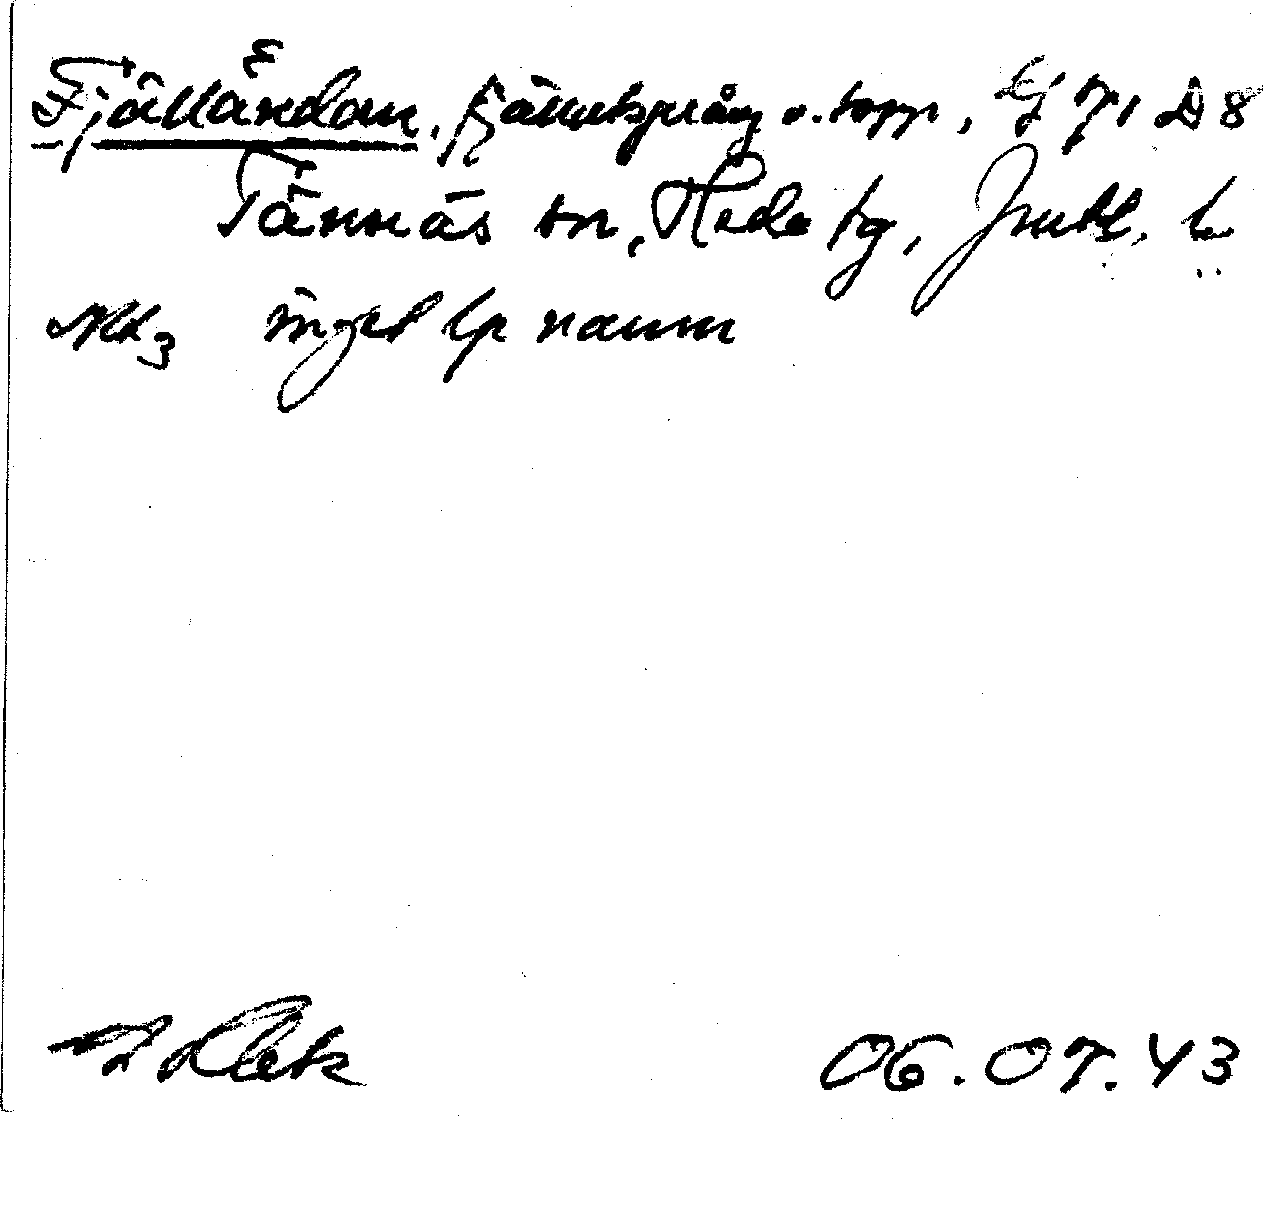 Fjälländan, fjällutsprång o. topp, Gj 71 D 8
Tännäs sn, Hede tg, Jmtl. l.
inget lp namn
06.07.43